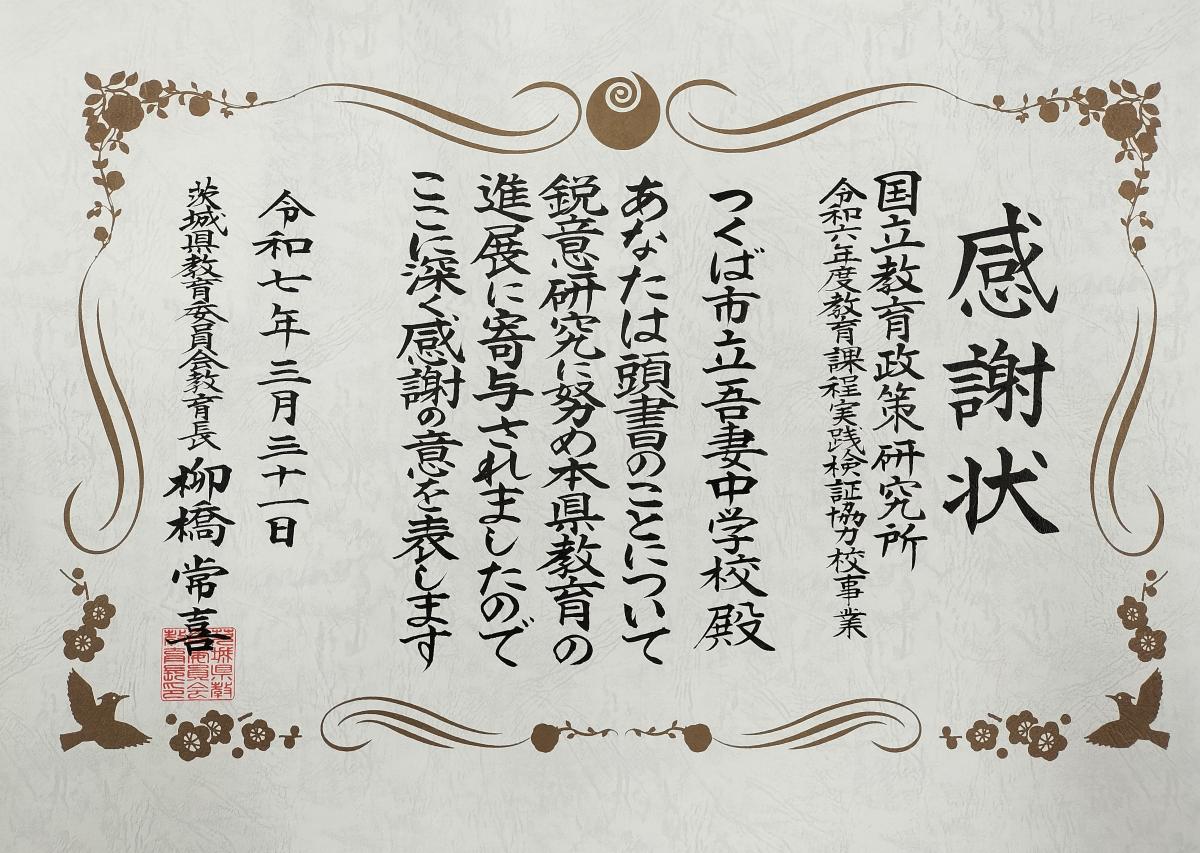 感謝状
国立教育政策研究所
令和六年度教育課程実践検証協力校事業
つくば市立吾妻中学校殿
あなたは頭書のことについて
鋭意研究に努め本県教育の
進展に寄与されましたので
ここに深く感謝の意を表します
令和七年三月三十一日
茨城県教育委員会教育長 柳橋常喜
茨城県教
育委員会
教育長印